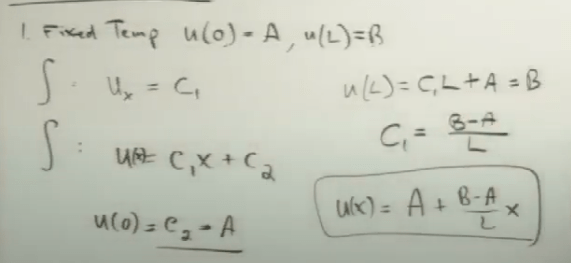 1. Fixed Temp u(0) = A, u(L)=B
∫ : u_x = C_1
∫ : u(x)= C_1x + C_2
u(0) = C_2 = A
u(L) = C_1L + A = B
C_1 = (B-A)/L
u(x) = A + (B-A)/L x